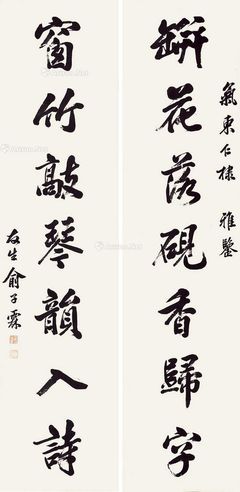 氣東仁棣 雅鑒
缾花落硯香歸字
窗竹敲琴韻入詩
友生俞子霖